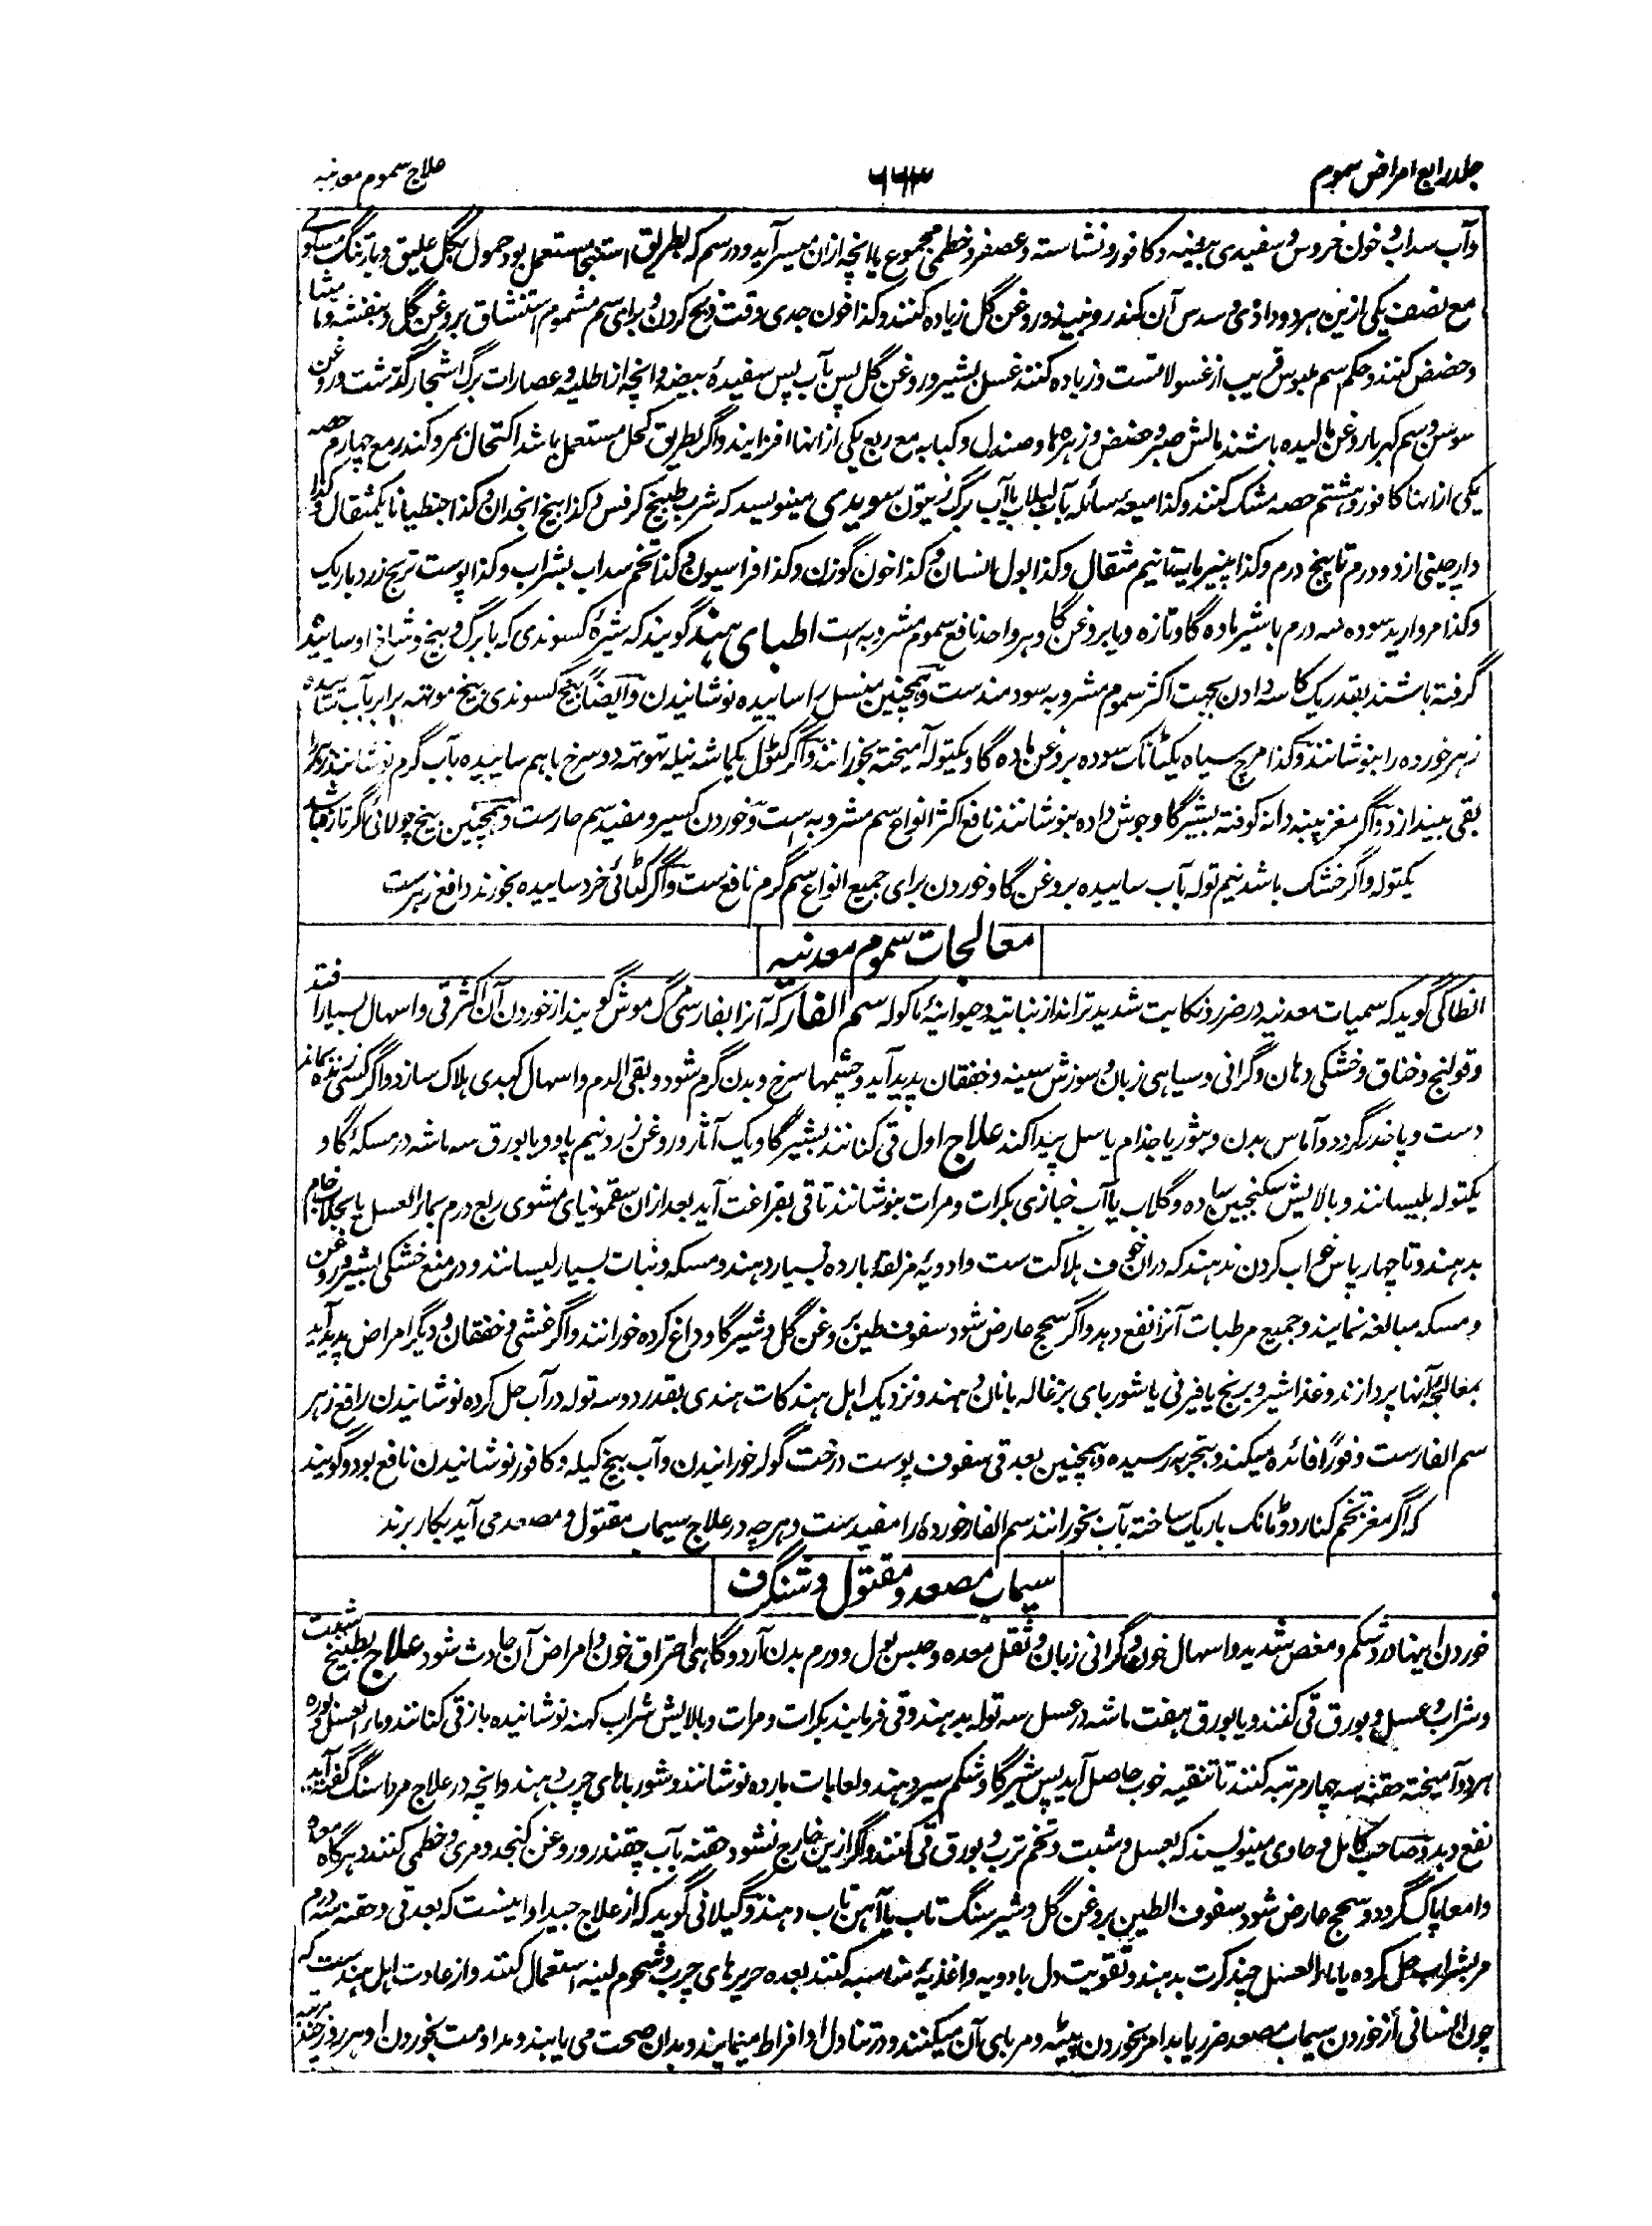 جلد رابع امراض سموم
۶۶۳
علاج سموم معدنیه
وآب سداب و خون خروس و سفیدی بیضه و کافور و نشاسته و عصفر و خطمی مجموع یا انچه ازان میسر آید و در سم که بطریق استنجا مستعمل بود حمول بگل علیق و بارتنگ
مع نصف یکی ازین هر دو و سدس آن کندر و نبیذ و روغن گل زیاده کنند و کذا خون جدی وقت ذبح کردن و برای سم مشموم استنشاق بروغن گل و بنفشه و مامیثا
و حضض کنند و حکم سم ملبوس قریب از غسولاتست و زیاده کنند غسل بشیر و روغن گل پس بآب پس سفیدهٔ بیضه و انچه از اطلیه و عصارات برگ اشجار گذشت و روغن
سوسن و سم که بار وغن مالیده باشند مالش صبر و حضض و زهرها و صندل و کبابه مع ربع یکی ازانها افزایند و اگر بطریق کحل مستعمل باشد اکتحال بمر و کندر مع چهارم حصه
یکی ازانها کافور و هشتم حصه مشک کنند و کذا میعهٔ سائله بآب لبلاب یا آب برگ زیتون سویدی مینویسد که شرب طبیخ کرفس و کذا بیخ انجدان و کذا جنطیانا یکمثقال و کذا
دارچینی از دو درم تا پنج درم و کذا پنیر مایه تا نیم مثقال و کذا بول انسان و کذا خون گوزن و کذا فراسیون و کذا تخم سداب بشراب و کذا پوست ترنج زرد باریک
و کذا مروارید سوده سه درم با شیر ماده گاو تازه و یا بروغن گاو هر واحد نافع سموم مشروبه است اطبای هند گویند که شیرهٔ کسوندی که با برگ و بیخ و شاخ او سائیده
گرفته باشند بقدر یک کاسه دادن بجهت اکثر سموم مشروبه سودمندست و همچنین منسل را ساییده نوشانیدن و ایضاً بیخ کسوندی بیخ موتهه برابر بآب سائیده
زهر خورده را بنوشانند و کذا مرچ سیاه یکٹانک سوده بروغن ماده گاو یکتوله آمیخته بخورانند و اگر کٹول یکماشه نیله تهوتهه دو سرخ باهم ساییده بآب گرم نوشانند زهر را
بقی بیندازد و اگر مغز پنبه دانه کوفته بشیر گاو جوش داده بنوشانند نافع اکثر انواع سم مشروبه است و خوردن کسیرو مفید سم حارست و همچنین بیخ چولائی اگر تازه باشد
یکتوله و اگر خشک باشد نیم توله بآب ساییده بروغن گاو خوردن برای جمیع انواع سم گرم نافع ست و اگر کٹائی خرد ساییده بخورند دافع زهرست
معالجات سموم معدنیه
انطاکی گوید که سمیات معدنیه در ضرر و نکایت شدیدتراند از نباتیه و حیوانیهٔ ماکوله سم الفار که آنرا بفارسی مرگ موش گویند از خوردن آن اکثر قی و اسهال بسیار افتد
و قولنج و خناق و خشکی دهان و گرانی و سیاهی زبان و سوزش سینه و خفقان پدید آید و چشمها سرخ و بدن گرم شود و بقی الدم و اسهال کبدی هلاک سازد و اگر کسی زنده بماند
دست و پا خدر گردد و آماس بدن و بثور یا جذام یا سل پیدا کند علاج اول قی کنانند بشیر گاو یک آثار و روغن زرد نیم پاو و یا بورق سه ماشه در مسکهٔ گاو
یکتوله بلیسانند و بالایش سکنجبین ساده و گلاب یا آب خبازی بکرات و مرات بنوشانند تا قی بفراغت آید بعد ازان سقمونیای مشوی ربع درم بماء العسل یا بجلاب خام
بدهند و تا چهار پاس خواب کردن ندهند که دران خوف هلاکت ست و ادویهٔ مزلقهٔ بارده بسیار دهند و مسکه و نبات بسیار لیسانند و در منع خشکی بشیر و روغن
و مسکه مبالغه نمایند و جمیع مرطبات آنرا نفع دهد و اگر سحج عارض شود سفوف طین بروغن گل و شیر گاو داغ کرده خورانند و اگر غشی و خفقان و دیگر امراض پدید آید
بمعالجهٔ آنها پردازند و غذا شیر و برنج یا فیرنی یا شوربای بزغاله بانان دهند و نزدیک اهل هند کات هندی بقدر دو سه توله در آب حل کرده نوشانیدن رافع زهر
سم الفارست و فوراً فائده میکند و بتجربه رسیده و همچنین بعد قی سفوف پوست درخت گولر خورانیدن و آب بیخ کیله و کافور نوشانیدن نافع بود و گویند
که اگر مغز تخم کنار دو ٹانک باریک ساخته بآب بخورانند سم الفار خورده را مفیدست و هر چه در علاج سیماب مقتول و مصعد می آید بکار برند
سیماب مصعد و مقتول و شنگرف
خوردن اینها درد شکم و مغص شدید و اسهال خون و گرانی زبان و ثقل معده و حبس بول و ورم بدن آرد و گاهی احتراق خون و امراض آن حادث شود علاج بطبیخ شبت
و شراب و عسل و بورق قی کنند و یا بورق هفت ماشه در عسل سه توله بدهند و قی فرمایند بکرات و مرات و بالایش شراب کهنه نوشانیده باز قی کنانند و ماء العسل و بوره
هر دو آمیخته حقنه سه چهار مرتبه کنند تا تنقیه خوب حاصل آید پس شیر گاو شکم سیر دهند و لعابات بارده نوشانند و شورباهای چرب دهند و انچه در علاج مرداسنگ گفته آید
نفع دهد و صاحب کامل و حاوی مینویسند که بعسل و شبت و تخم ترب و بورق قی کنند و اگر ازین خارج نشود حقنه بآب چقندر و روغن کنجد و مری و خطمی کنند و هرگاه معده
و امعا پاک گردد و سحج عارض شود سفوف الطین بروغن گل و شیر سنگ تاب یا آهن تاب دهند و گیلانی گوید که از علاج جید او اینست که بعد قی و حقنه سه درم
مر بشراب حل کرده یا ماء العسل چند کرت بدهند و تقویت دل بادویه و اغذیهٔ مناسبه کنند بعده حریرهای چرب و شحوم لینه استعمال کنند و از عادت اهل هندست که
چون انسانی از خوردن سیماب مصعد ضرر یابد امر بخوردن پیٹهه و مربای آن میکنند و در تناول او افراط مینمایند و بدان صحت می یابند و مداومت بخوردن او هر روز چند مرتبه